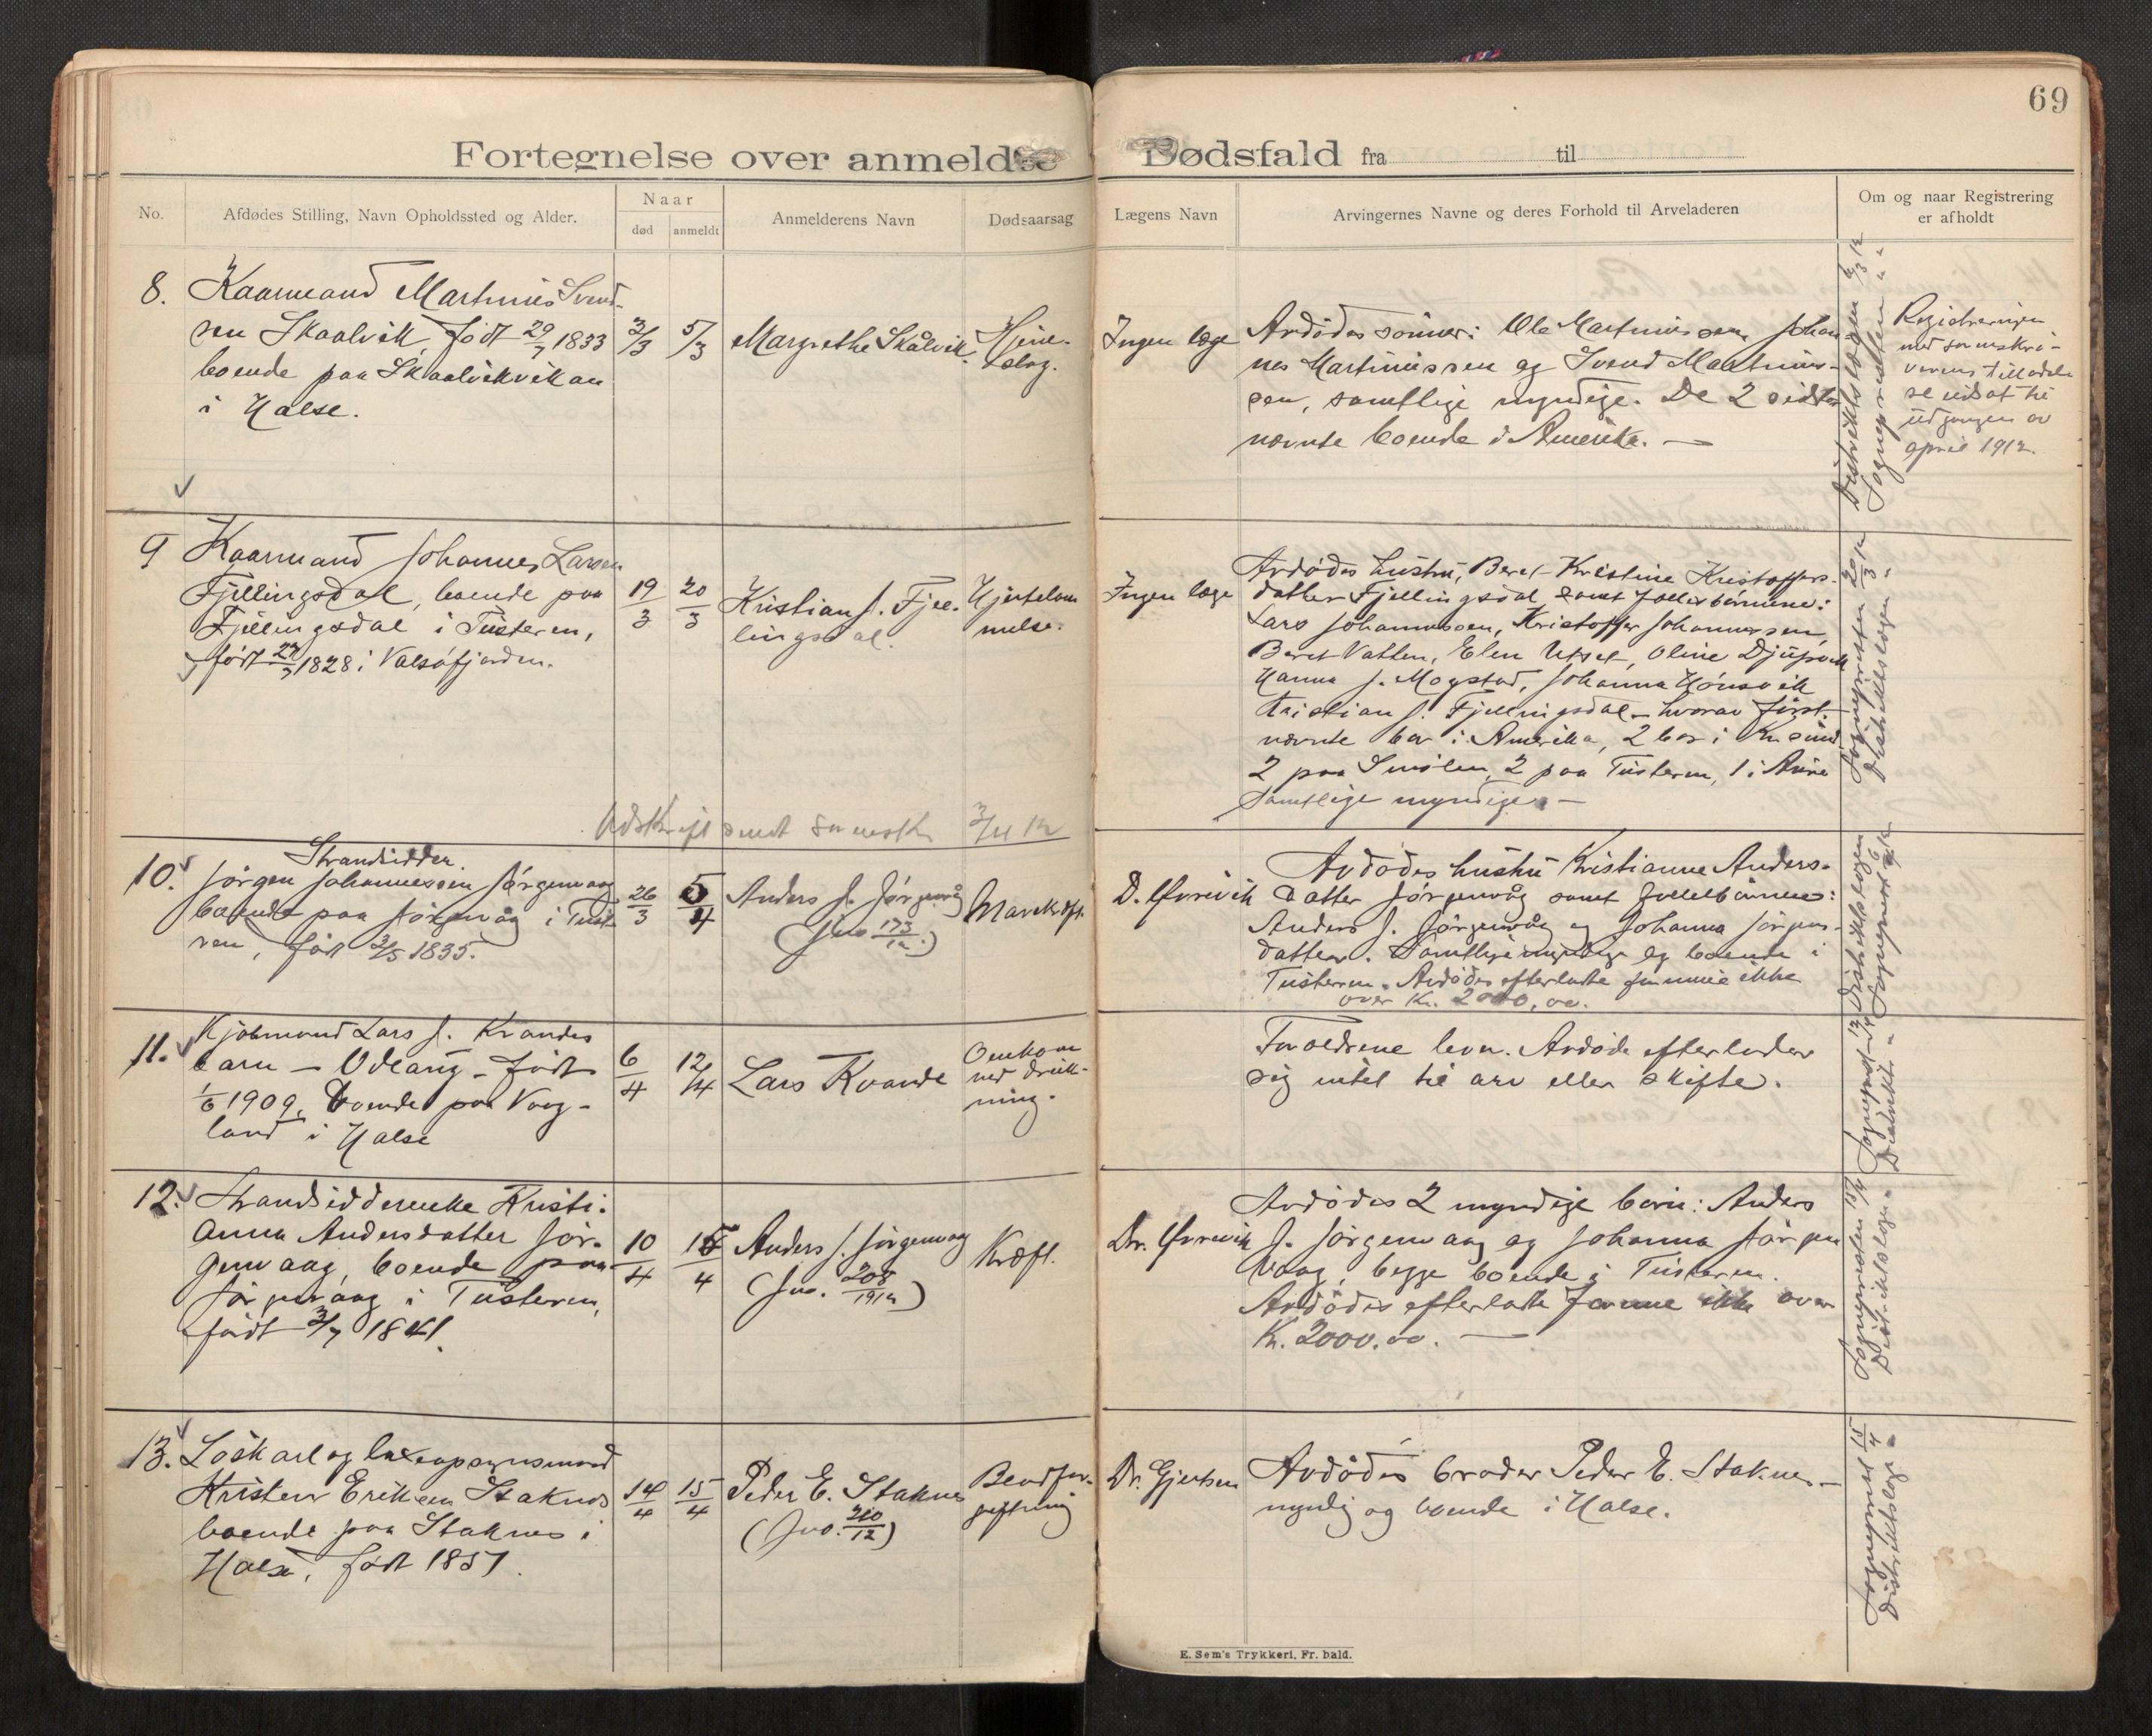 69
Fortegnelse over anmeldte Dødsfald fra til
No.
Afdødes Stilling, Navn Opholdssted og Alder.
Naar
død
anmeldt
Anmelderens Navn
Dødsaarsag
Lægens Navn
Arvingernes Navne og deres Forhold til Arveladeren
Om og naar Registrering
er afholdt
8. Kaarmand Martinus Svend-
sen Skaalvik, født 29/7 1833
boende paa Skaalvikvikan
i Halse.
3/3
5/3
Margrethe Skålvik.
Hjerne-
slag.
Ingen læge
Avdødes sönner: Ole Martinussen, Johan
nes Martinussen og Svend Martinus-
sen, samtlige myndige. De 2 sidst
nævnte boende i Amerika. —
Distriktslægen 6/3 12
Sognepresten " "
Registreringen
med sorenskri-
verens tilladel
se udsat til
udgangen av
april 1912.
9 Kaarmand Johannes Larsen
Fjellingsdal, boende paa
Fjellingsdal i Tusteren,
født 27/3 1828 i Valsøfjorden.
19/3
20/3
Kristian J. Fjel-
lingsdal.
Hjertelam
melse.
Ingen læge
Avdødes hustru, Beret Kristine Kristoffers-
datter Fjellingsdal samt fællesbörnene:
Lars Johannessen, Kristoffer Johannessen,
Beret Vatten, Elen Utset, Oline Djupvik
Hanna J. Mogstad, Johanna Hönsvik
Kristian J. Fjellingsdal - hvorav först-
nævnte bor i Amerika, 2 bor i Kr.sund
2 paa Smölen, 2 paa Tusteren, 1 i Aure
Samtlige myndige. —
Sognepresten 20/3 12
Distriktslægen "
Udskrift sendt sorenskr 3/4 12
10. Strandsidder
Jörgen Johannessen Jörgenvaag
boende paa Jörgenvåg i Tust-
ren, født 3/5 1835.
26/3
5/4
Anders J. Jörgenvåg
(Jno 173/12.)
Mavekræft.
D. Övrevik
Avdödes hustru Kristianne Anders-
datter Jörgenvåg samt fællesbörnene:
Anders J. Jörgenvåg og Johanna Jörgens-
datter. Samtlige myndige og boende i
Tusteren. Avdödes efterladte formue ikke
over Kr. 2000,00.
Distriktslægen
Sognepresten
11. Kjøbmand Lars J. Kvandes
barn - Odlaug - født
1/6 1909. Boende paa Vaag-
land i Halse
6/4
12/4
Lars Kvande
Omkom
ved druk-
ning.
Foraeldrene lever. Avdöde efterlader
sig intet til arv eller skifte.
12. Strandsidderenke Kristi-
anna Andersdatter Jör-
genvaag, boende paa
Jörgenvaag i Tusteren,
født 3/7 1841.
10/4
15/4
Anders J. Jörgenvaag
(Jno. 208/1912)
Kræft.
Dr. Övrevik
Avdödes 2 myndige börn: Anders
J. Jörgenvaag og Johanna Jörgen
vaag, begge boende i Tusteren.
Avdödes efterladte formue ikke over
Kr. 2000.00. —
Sognepresten 15/4
Distriktslægen "
13. Löskarl og lakseopsynsmand
Kristen Eriksen Staknes
boende paa Staknes i
Halse, født 1851.
14/4
15/4
Peder E. Staknes
(Jno. 210/12)
Blodfor-
giftning
Dr. Gjertsen
Avdödes broder Peder E. Staknes -
myndig og boende i Halse.
Sogneprest 15/4
Distriktslæge "
E. Sem's Trykkeri, Fr. hald.